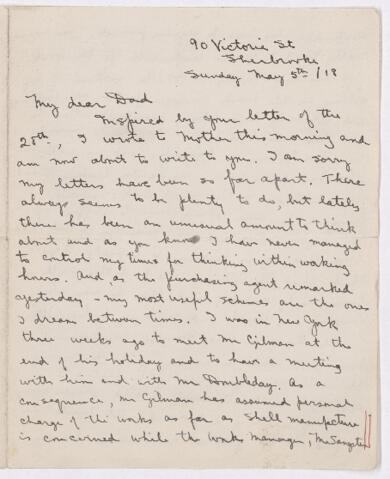 90 Victoria St
Sherbrooke
Sunday May 5th/18
My dear Dad
Inspired by your letter of the
28th, I wrote to Mother this morning and
am now about to write to you. I am sorry
my letters have been so far apart. There
always seems to be plenty to do, but lately
there has been an unusual amount to think
about and as you know I have never managed
to control my times for thinking within waking
hours. And, as the purchasing agent remarked
yesterday - my most useful schemes are the ones
I dream between times. I was in New York
three weeks ago to meet Mr Gilman at the
end of his holiday and to have a meeting
with him and with Mr Doubleday. As a
consequence, Mr Gilman has assumed personal
charge of the works as far as shell manufacture
is concerned while the works manager, Mr Sangster